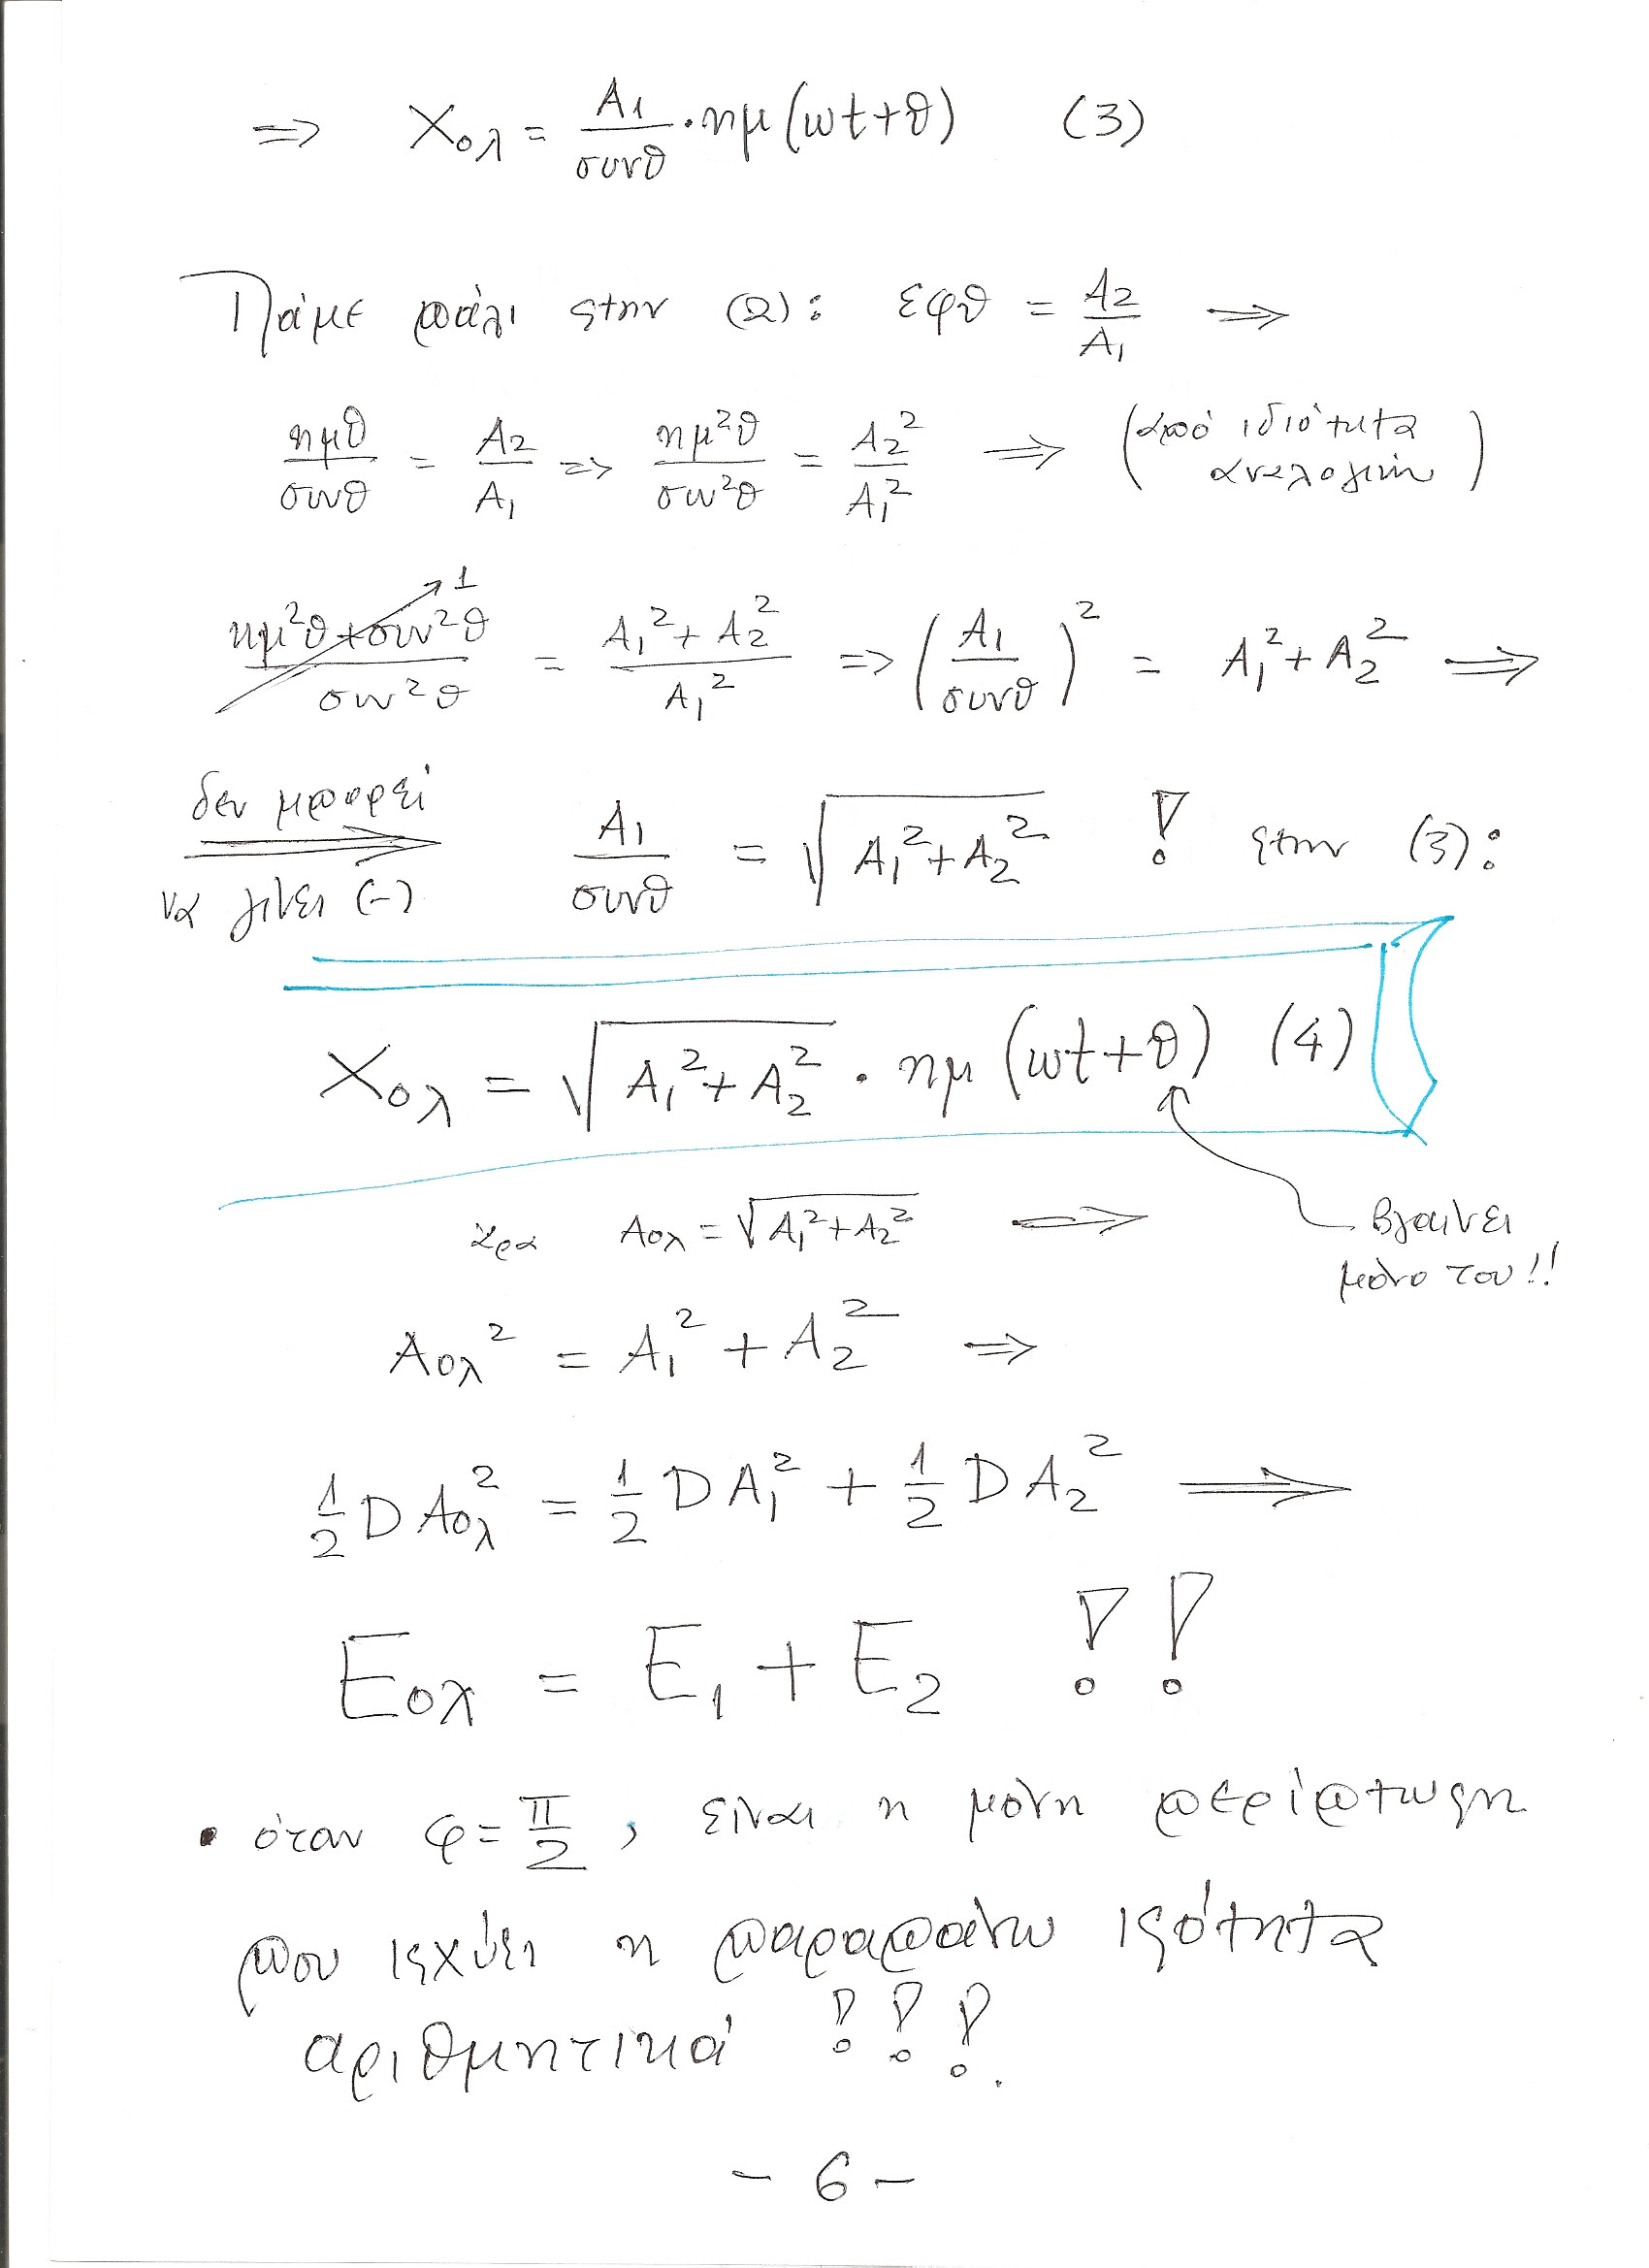 ⇒ Xολ = A1/συνθ · ημ(ωt+θ) (3)
Πάμε πάλι στην (2): εφθ = A2/A1 ⇒
ημθ/συνθ = A2/A1 ⇒ ημ²θ/συν²θ = A2²/A1² ⇒ (από ιδιότητα
αναλογιών)
ημ²θ+συν²θ/συν²θ = A1²+A2²/A1² ⇒ (A1/συνθ)² = A1²+A2² ⇒
1
δεν μπορεί
⇒ A1/συνθ = √A1²+A2² ! στην (3):
να γίνει (-)
Xολ = √A1²+A2² · ημ(ωt+θ) (4)
άρα Aολ = √A1²+A2² ⇒
βγαίνει
μόνο του!!
Aολ² = A1² + A2² ⇒
1/2 D Aολ² = 1/2 D A1² + 1/2 D A2² ⇒
Eολ = E1 + E2 !!
• όταν φ = π/2, είναι η μόνη περίπτωση
που ισχύει η παραπάνω ισότητα
αριθμητικά !!!.
- 6 -